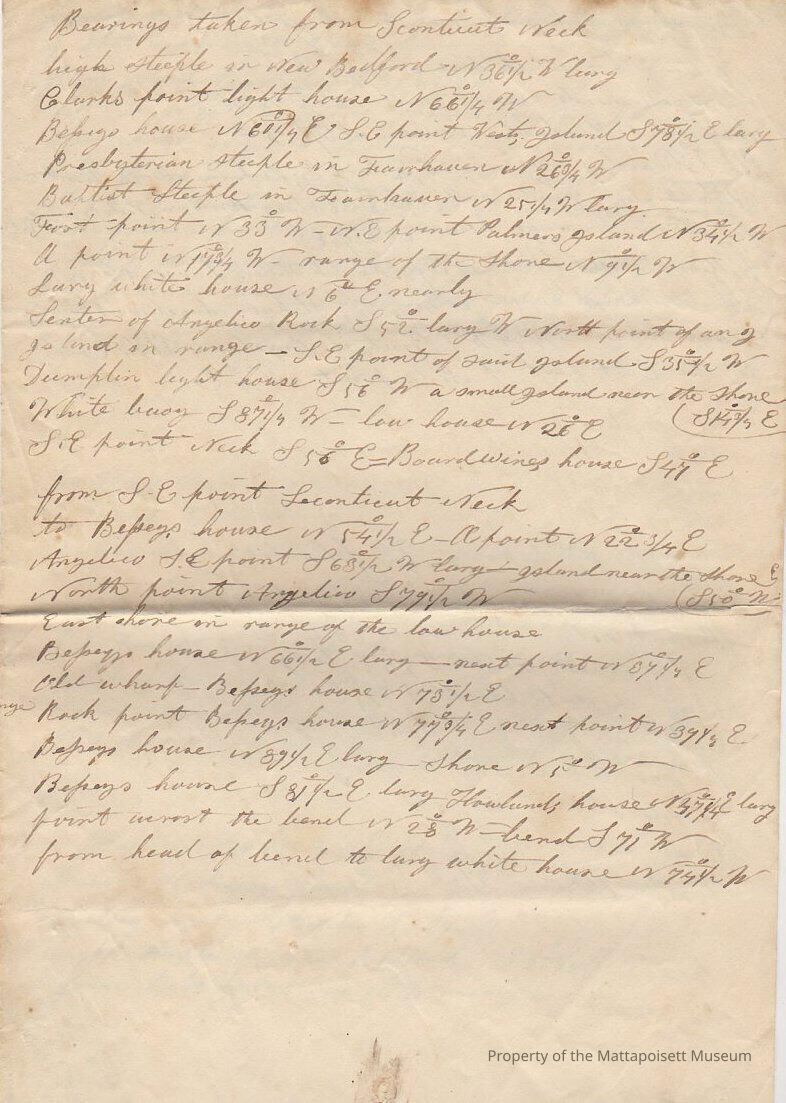 Bearings taken from Sconticut Neck
high steeple in New Bedford N 36 1/2° W larg
Clarks point light house N 66 1/4° W
Besseys house N 60 1/4° E S.E point Wests Island S 78 1/2° E larg
Presbyterian steeple in Fairhaven N 26 3/4° W
Baptist Steeple in Fairhaven N 25 1/4 W larg
Fort point N 33° W – N.E point Palmers Island N 34 1/2° W
A point N 17 3/4° W – range of the Shore N 9 1/2° W
Larg white house N 6° E nearly
Senter of Angelico Rock S 52° larg W North point of ang
Island in range – S.E point of said Island S 35 1/2° W
Dumplin light house S 56° W a small Island near the Shore
White buoy S 87 1/4° W – low house N 26° E (S 14 3/4° E
S.E point Neck S 56° E = Boardwines house S 47° E
from S.E point Sconticut Neck
to Besseys house N 54 1/2° E – A point N 22 3/4° E
Angelico S.E point S 68 1/2° W larg – Island near the Shore
North point Angelico S 79 1/2° W (S 50°
East shore in range of the low house
Besseys house N 66 1/2° E larg – next point N 37 1/4° E
Old wharf – Besseys house N 73 1/2° E
Rock point Besseys house N 77 3/4° E next point N 39 1/4° E
Besseys house N 89 1/2° E larg – Shore N 5° W
Besseys house S 81 1/2° E larg Howlands house N 47 1/4° E larg
point acrost the bend N 28° W – bend S 71° W
from head of bend to larg white house N 74 1/2° W
Property of the Mattapoisett Museum